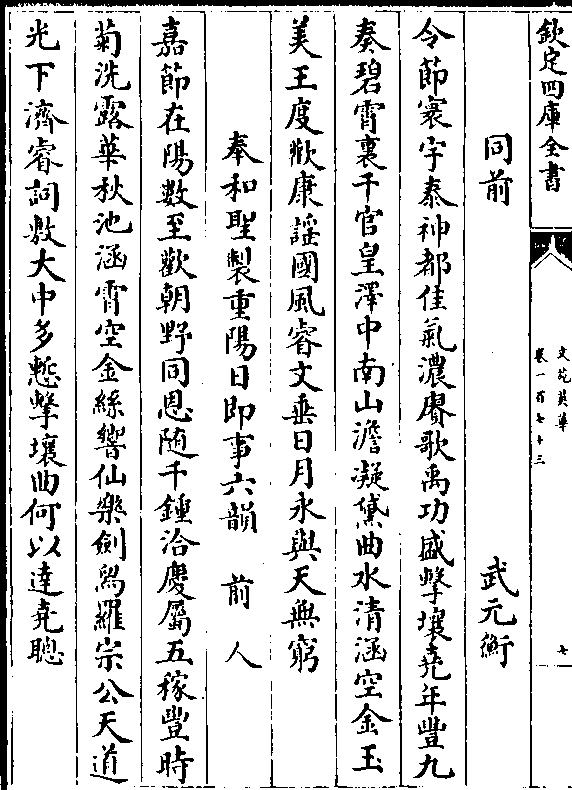 欽定四庫全書
文苑英華
卷一百七十三
七
同前 武元衡
令節寰宇泰神都佳氣濃賡歌禹功盛擊壤堯年豐九
奏碧霄裏千官皇澤中南山澹凝黛曲水清涵空金玉
美王度歡康謠國風睿文垂日月永與天無窮
奉和聖製重陽日即事六韻 前人
嘉節在陽數至歡朝野同恩隨千鍾洽慶屬五稼豐時
菊洗露華秋池涵霄空金絲響仙樂劍舄羅宗公天道
光下濟睿詞敷大中多慙擊壤曲何以達堯聰